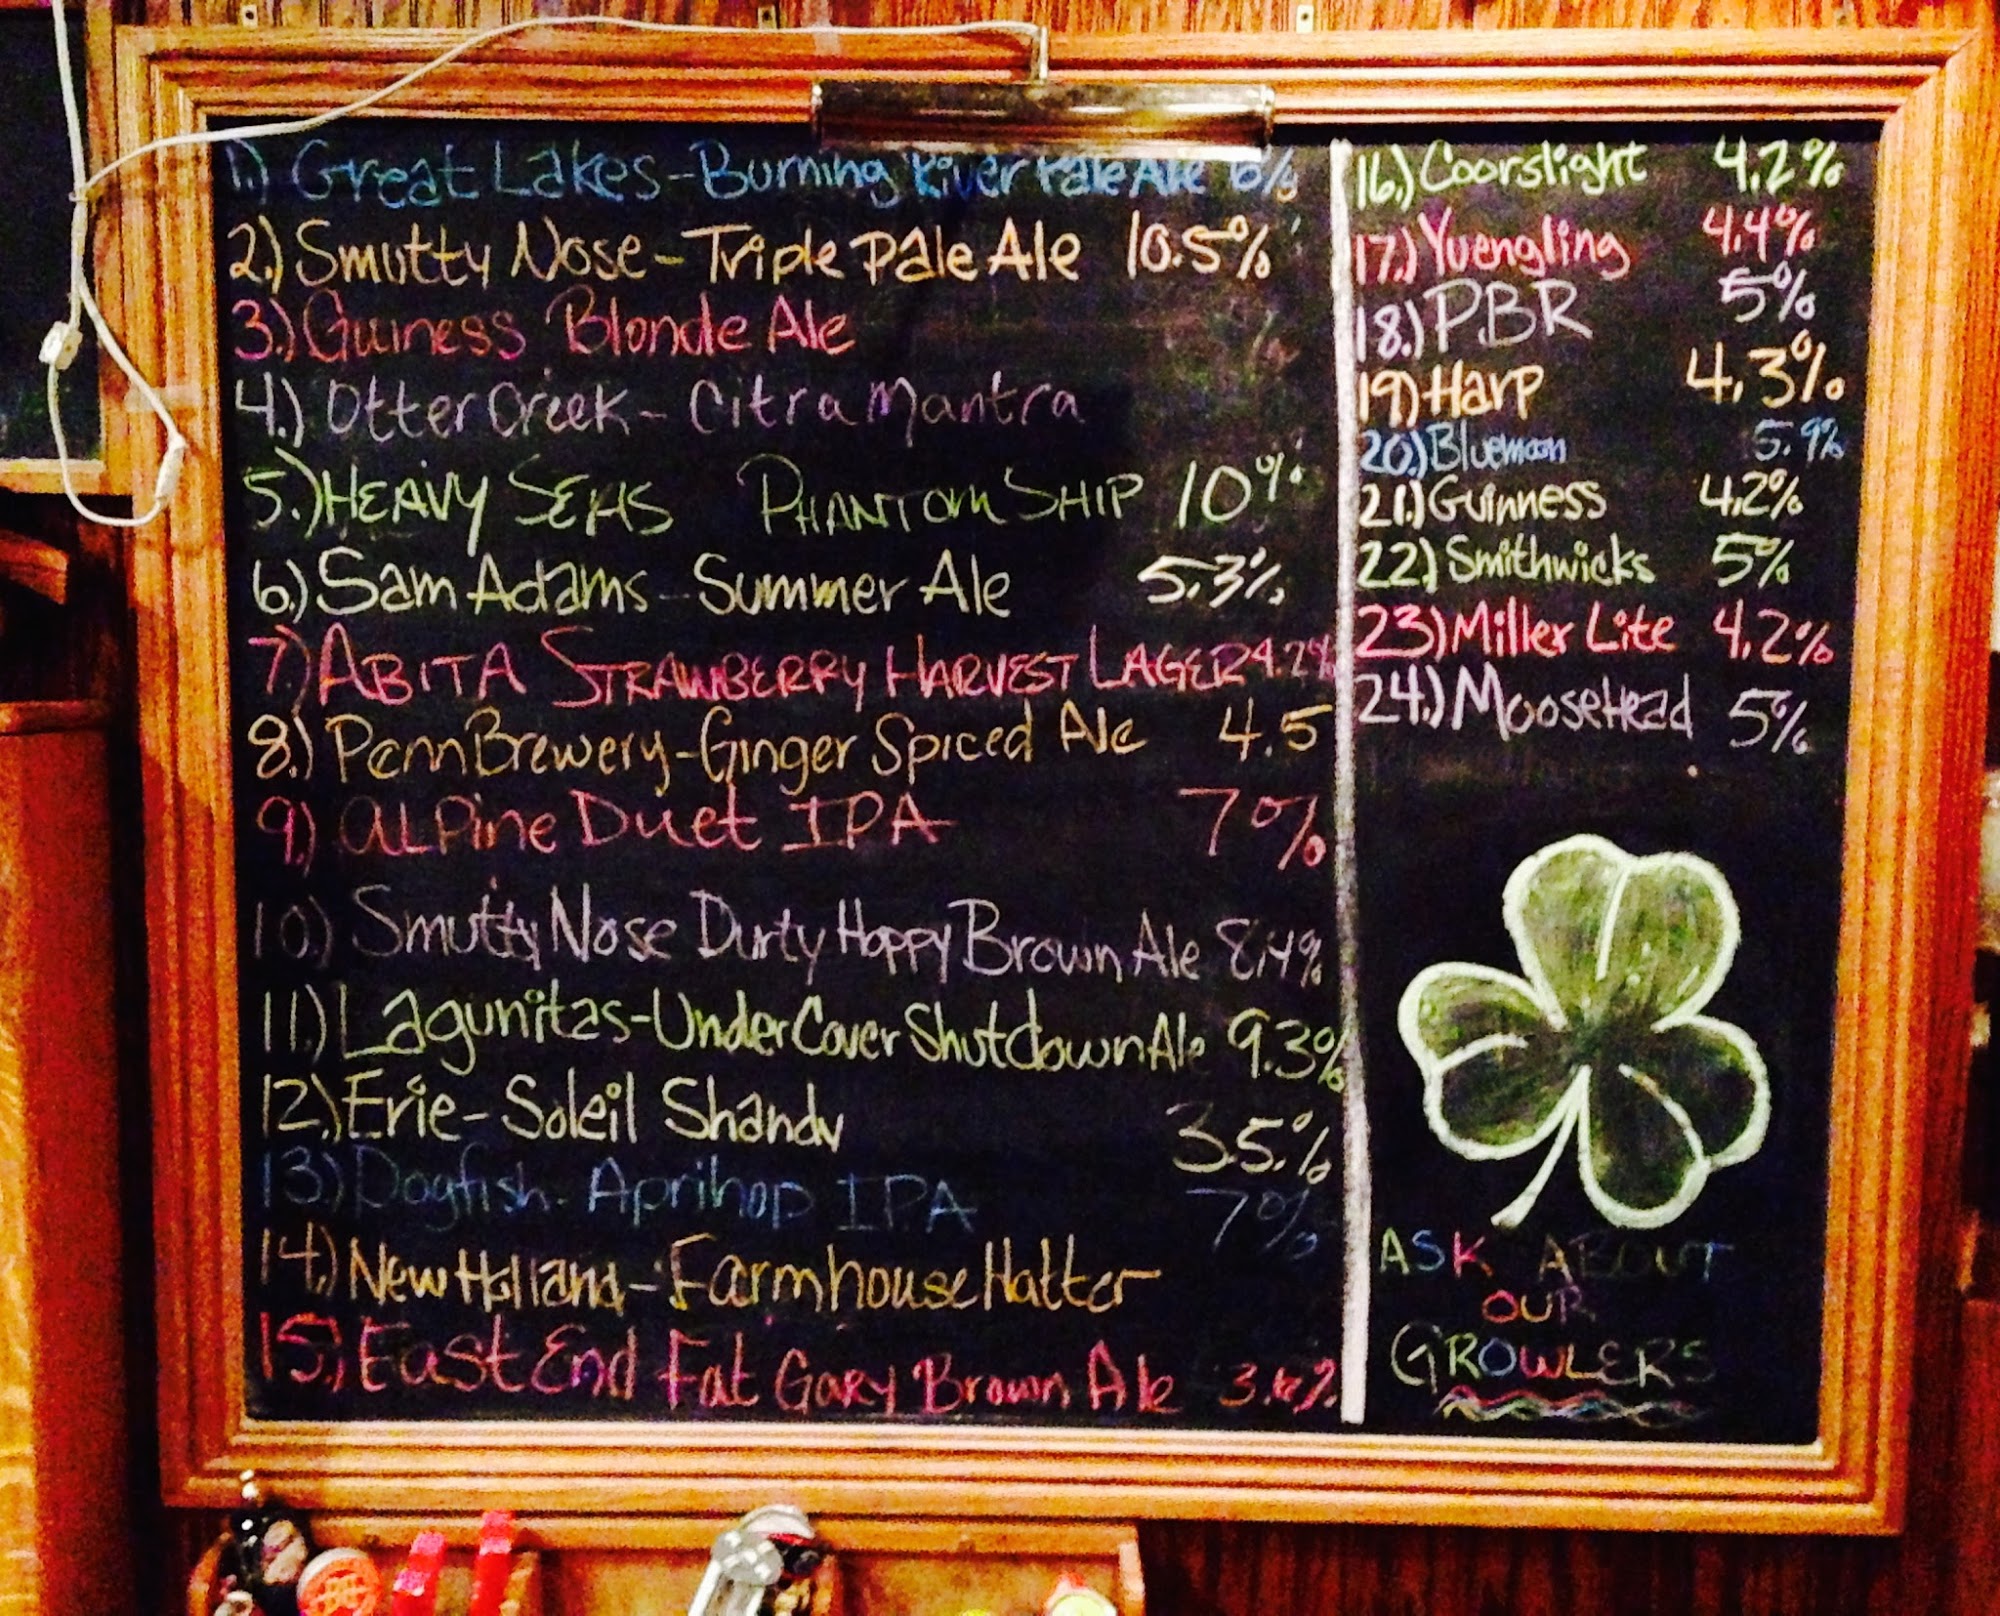 1.) Great Lakes - Burning River Pale Ale 6%
2.) Smutty Nose - Triple Pale Ale 10.5%
3.) Guiness Blonde Ale
4.) Otter Creek - Citra Mantra
5.) HEAVY SEAS PHANTOM SHIP 10%
6.) Sam Adams - Summer Ale 5.3%
7.) ABITA STRAWBERRY HARVEST LAGER 4.2%
8.) Penn Brewery - Ginger Spiced Ale 4.5
9.) ALPine Duet IPA 7%
10.) Smutty Nose Durty Hoppy Brown Ale 8.4%
11.) Lagunitas - UnderCover Shutdown Ale 9.3%
12.) Erie - Soleil Shandy 3.5%
13.) Dogfish - Aprihop IPA 7%
14.) New Holland - Farmhouse Hatter
15.) East End Fat Gary Brown Ale 3.%
16.) Coorslight 4.2%
17.) Yuengling 4.4%
18.) PBR 5%
19.) Harp 4.3%
20.) Bluemoon 5.9%
21.) Guinness 4.2%
22.) Smithwicks 5%
23.) Miller Lite 4.2%
24.) MooseHead 5%
ASK ABOUT
OUR
GROWLERS